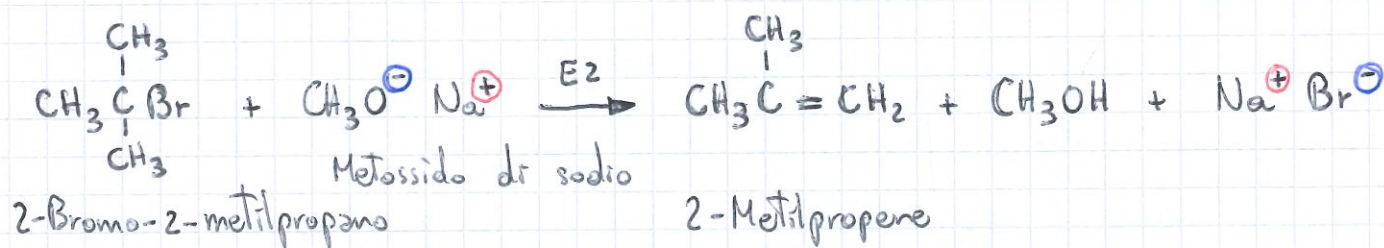 CH₃ CH₃
CH₃ C Br + CH₃O⊖ Na⊕ E2 → CH₃C = CH₂ + CH₃OH + Na⊕ Br⊖
CH₃
Metossido di sodio
2-Bromo-2-metilpropano 2-Metilpropene